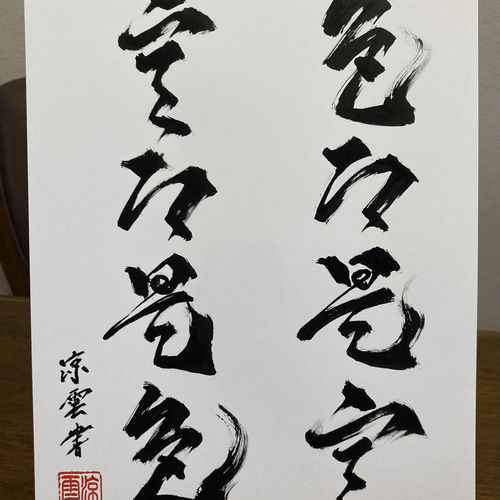 色即是空
空即是色
涼雲書
涼雲